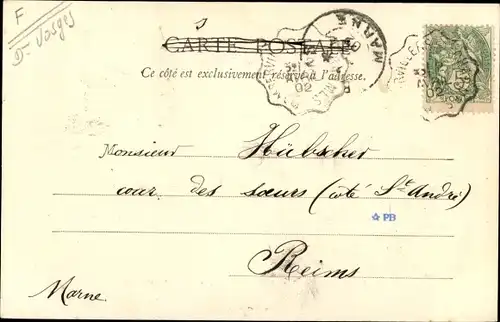 F
Dt Vosges
CARTE POSTALE
Ce côté est exclusivement réservé à l'adresse.
MARNE
02
02
5
Monsieur Hübscher
cour des sœurs (côté St André)
PB
Reims
Marne